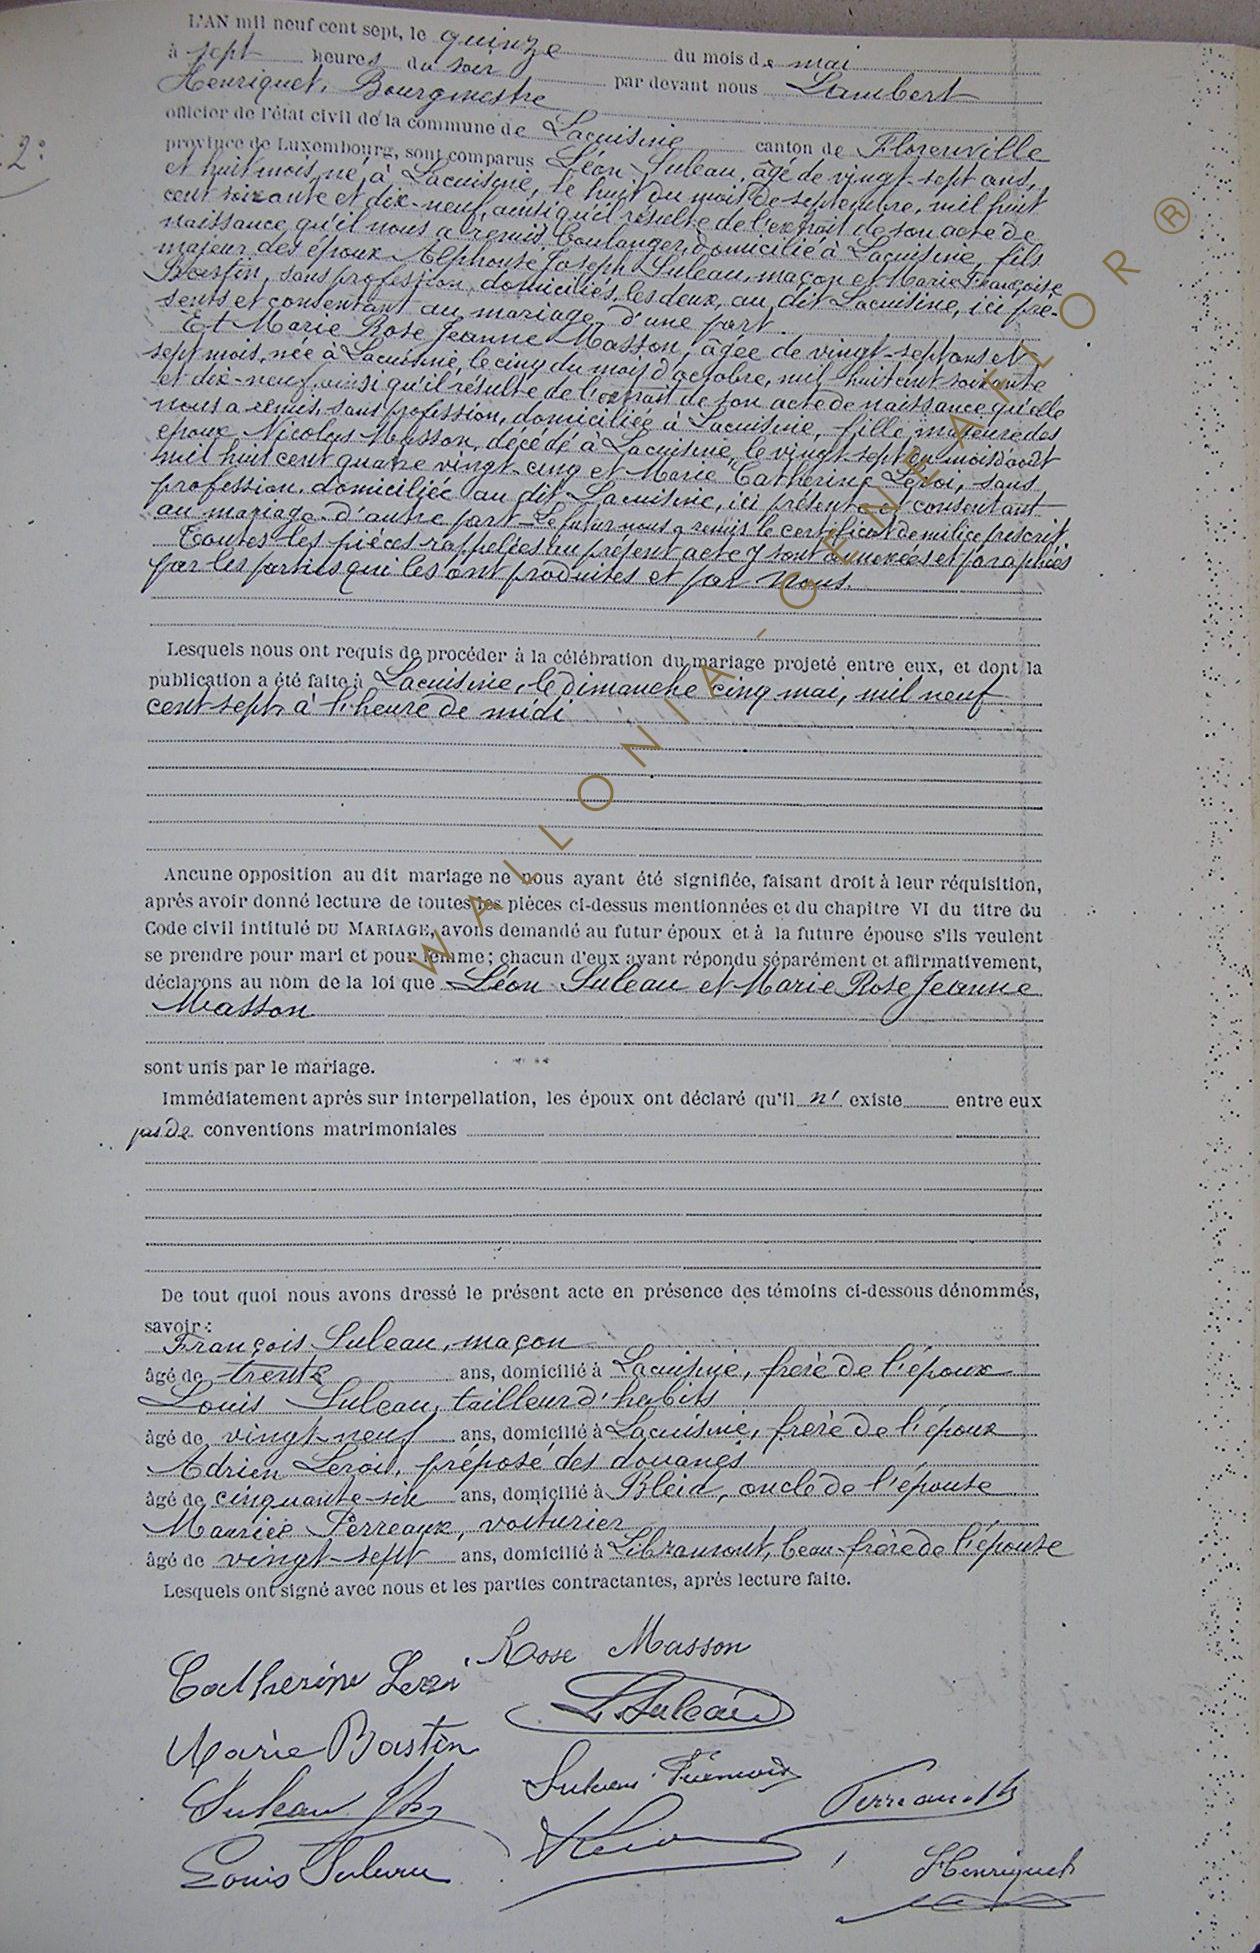 L'AN mil neuf cent sept, le quinze du mois de mai
à sept heures du soir par devant nous Lambert
Henriquet, Bourgmestre
officier de l'état civil de la commune de Lacuisine canton de Florenville
2:
province de Luxembourg, sont comparus Léon Suleau, âgé de vingt-sept ans,
et huit mois, né à Lacuisine, le huit du mois de septembre, mil huit
cent soixante et dix-neuf, ainsi qu'il résulte de l'extrait de son acte de
naissance qu'il nous a remis, boulanger, domicilié à Lacuisine, fils
majeur des époux Alphonse Joseph Suleau, maçon et Marie Françoise
Bastin, sans profession, domiciliés, les deux, au dit Lacuisine, ici pré-
sents et consentant au mariage, d'une part.
Et Marie Rose Jeanne Masson, âgée de vingt-sept ans et
sept mois, née à Lacuisine, le cinq du mois d'octobre, mil huit cent soixante
et dix-neuf, ainsi qu'il résulte de l'extrait de son acte de naissance qu'elle
nous a remis, sans profession, domiciliée à Lacuisine, fille majeure des
époux Nicolas Masson, décédé à Lacuisine, le vingt-sept du mois d'août
mil huit cent quatre vingt-cinq et Marie Catherine Leroi, sans
profession, domiciliée au dit Lacuisine, ici présente et consentant
au mariage, d'autre part. Le futur nous a remis le certificat de milice prescrit.
Toutes les pièces rappelées au présent acte y sont annexées et paraphées
par les parties qui les ont produites et par nous.
Lesquels nous ont requis de procéder à la célébration du mariage projeté entre eux, et dont la
publication a été faite à Lacuisine, le dimanche cinq mai, mil neuf
cent sept, à l'heure de midi
Aucune opposition au dit mariage ne nous ayant été signifiée, faisant droit à leur réquisition,
après avoir donné lecture de toutes les pièces ci-dessus mentionnées et du chapitre VI du titre du
Code civil intitulé DU MARIAGE, avons demandé au futur époux et à la future épouse s'ils veulent
se prendre pour mari et pour femme; chacun d'eux ayant répondu séparément et affirmativement,
déclarons au nom de la loi que Léon Suleau et Marie Rose Jeanne
Masson
sont unis par le mariage.
Immédiatement après sur interpellation, les époux ont déclaré qu'il n' existe entre eux
pas de conventions matrimoniales
De tout quoi nous avons dressé le présent acte en présence des témoins ci-dessous dénommés,
savoir:
François Suleau, maçon
âgé de trente ans, domicilié à Lacuisine, frère de l'époux
Louis Suleau, tailleur d'habits
âgé de vingt-neuf ans, domicilié à Lacuisine, frère de l'époux
Adrien Leroi, préposé des douanes
âgé de cinquante-six ans, domicilié à Bleid, oncle de l'épouse
Maurice Perreaux, voiturier
âgé de vingt-sept ans, domicilié à Libramont, beau-frère de l'épouse
Lesquels ont signé avec nous et les parties contractantes, après lecture faite.
Rose Masson
Catherine Leroi
L. Suleau
Marie Bastin
Suleau
Louis Suleau
LHenriquet
WALLONIA - GENEAFLOR ®